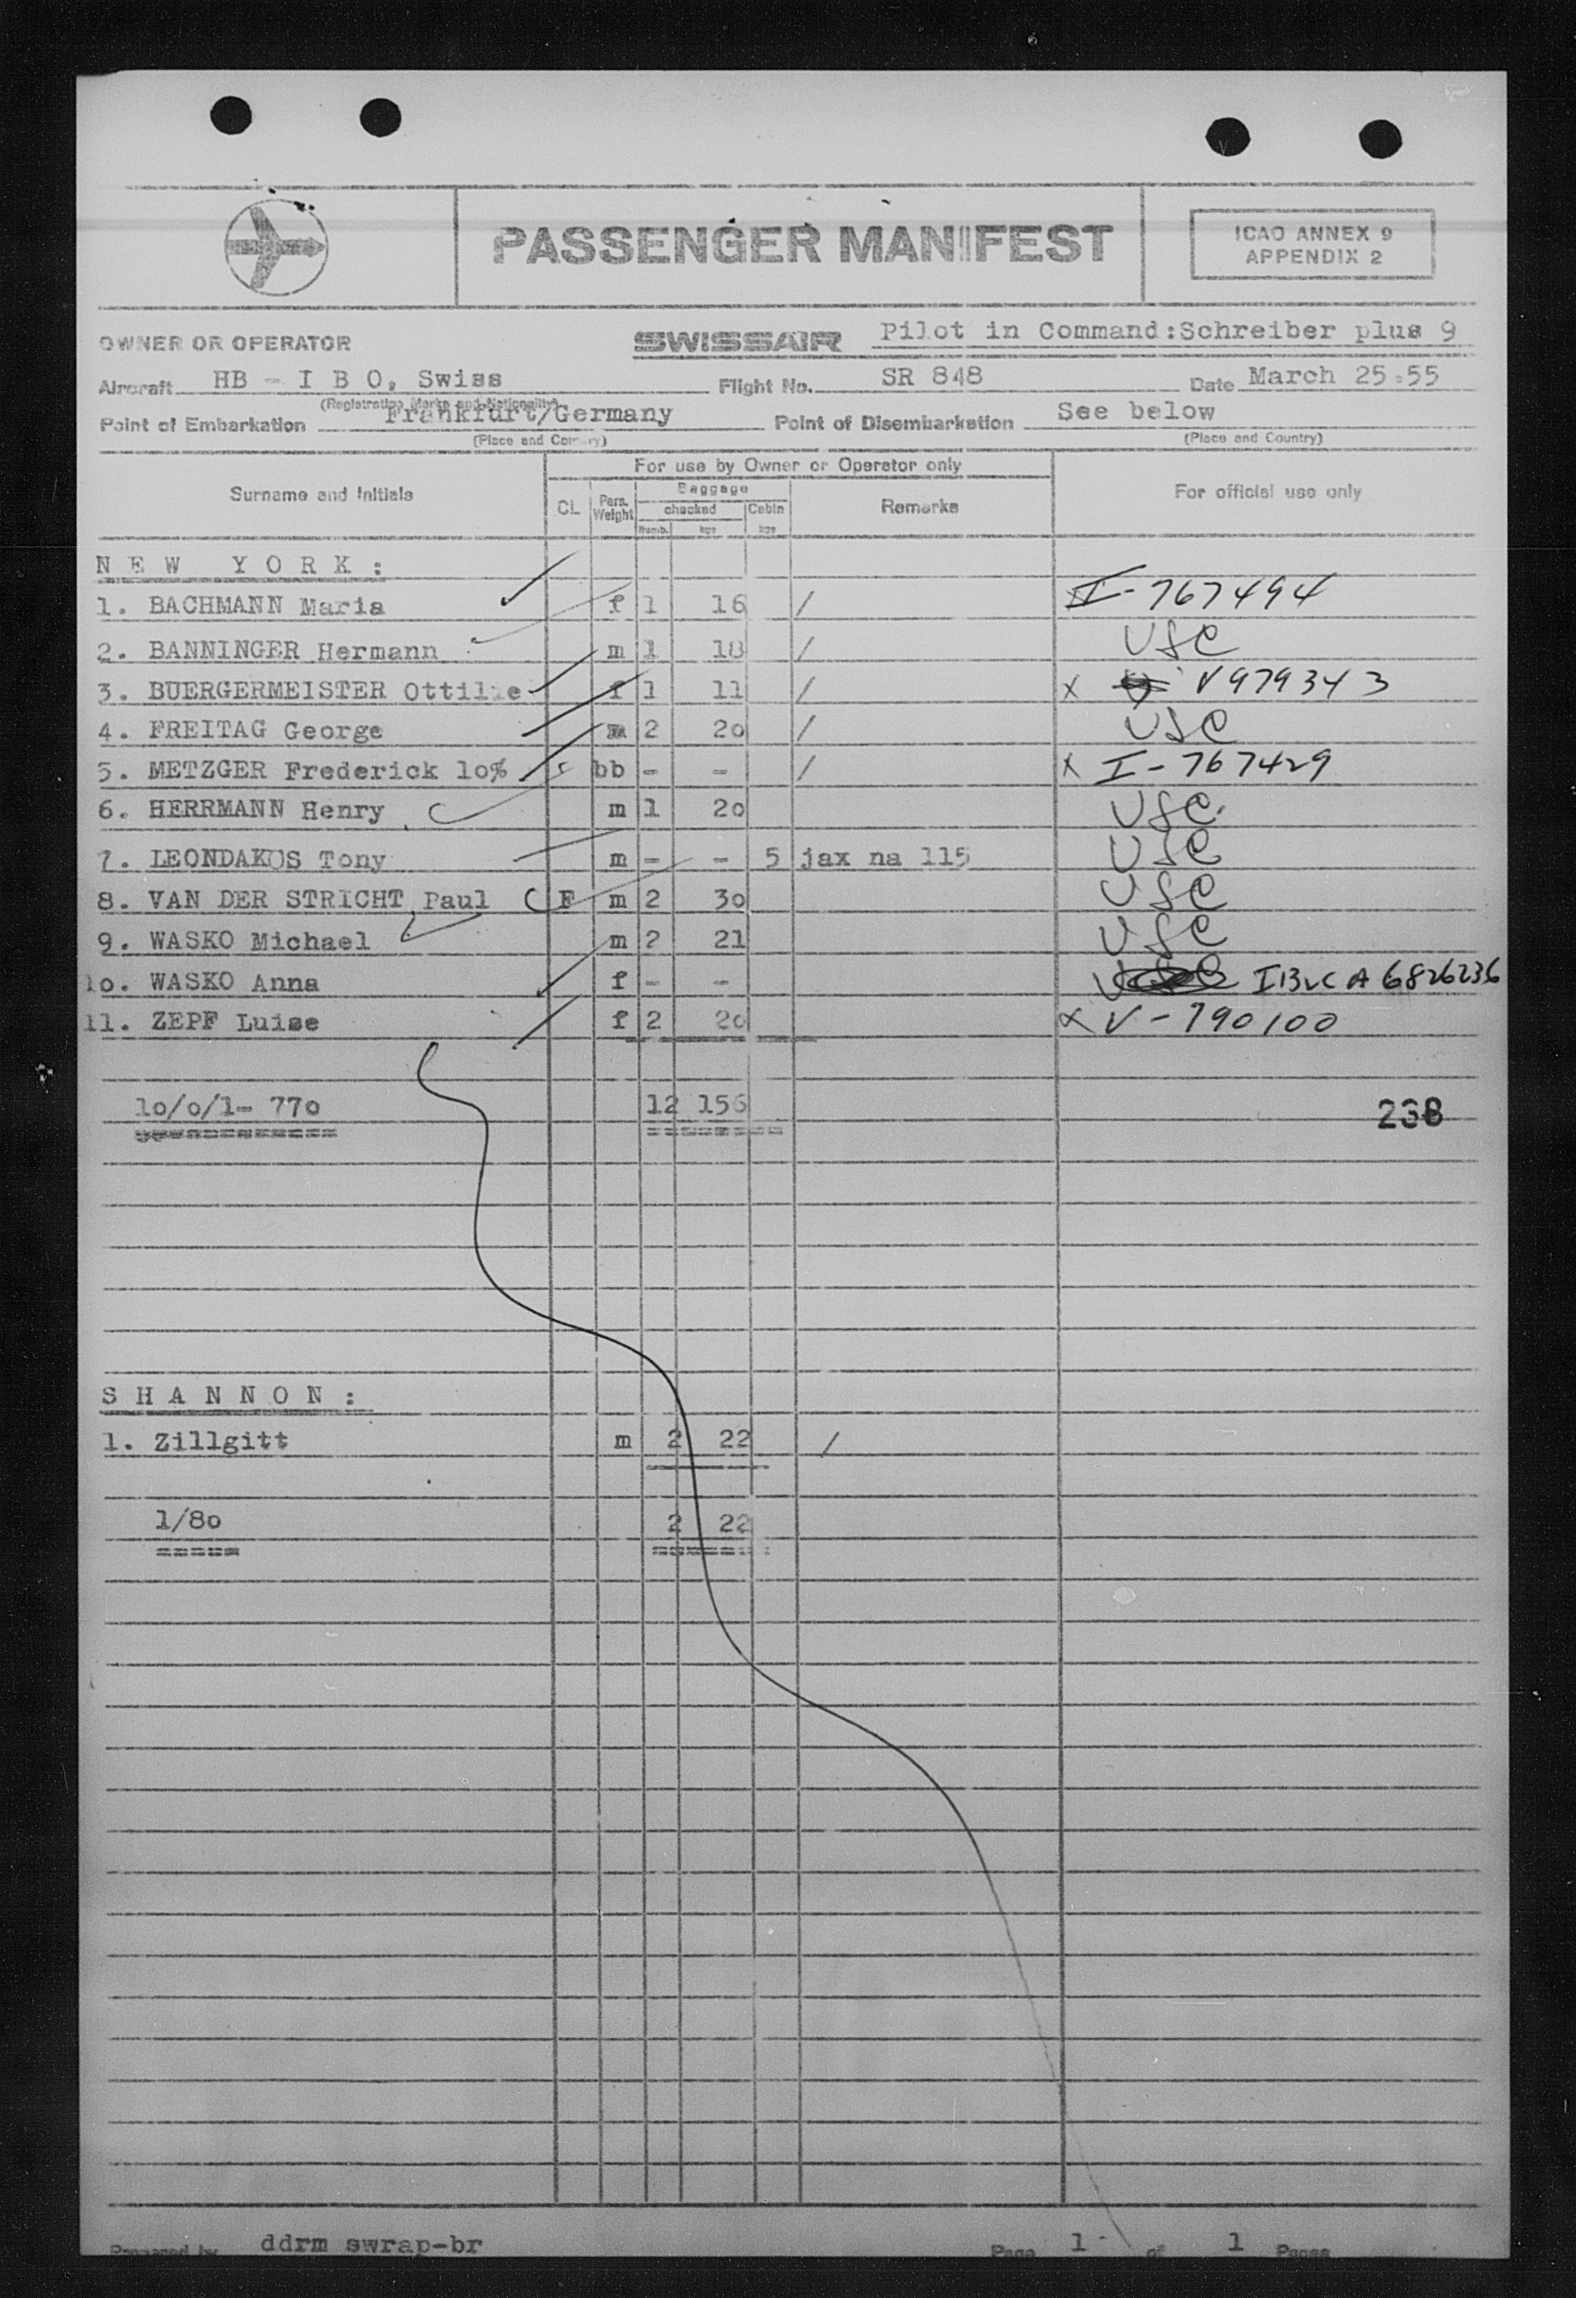 PASSENGER MANIFEST
ICAO ANNEX 9
APPENDIX 2
OWNER OR OPERATOR SWISSAIR Pilot in Command:Schreiber plus 9
Aircraft HB - I B O, Swiss Flight No. SR 848 Date March 25.55
(Registration Marks and Nationality)
Point of Embarkation Frankfurt/Germany Point of Disembarkation See below
(Place and Country) (Place and Country)
For use by Owner or Operator only
Surname and Initials CL Pers. Weight Baggage checked Numb. kgs Cabin kgs Remarks For official use only
N E W Y O R K :
1. BACHMANN Maria f 1 16 / I-767494
2. BANNINGER Hermann m 1 18 / USC
3. BUERGERMEISTER Ottilie f 1 11 / x V979343
4. FREITAG George m 2 20 / USC
5. METZGER Frederick 10% bb - - / x I-767429
6. HERRMANN Henry m 1 20 USC.
7. LEONDAKOS Tony m - - 5 jax na 115 USC
8. VAN DER STRICHT Paul F m 2 30 USC
9. WASKO Michael m 2 21 USC
10. WASKO Anna f - - A 6826236
11. ZEPF Luise f 2 20 x V-790100
10/0/1- 770 12 156 238
S H A N N O N :
1. Zillgitt m 2 22 /
1/80 2 22
Prepared by ddrm swrap-br Page 1 of 1 Pages